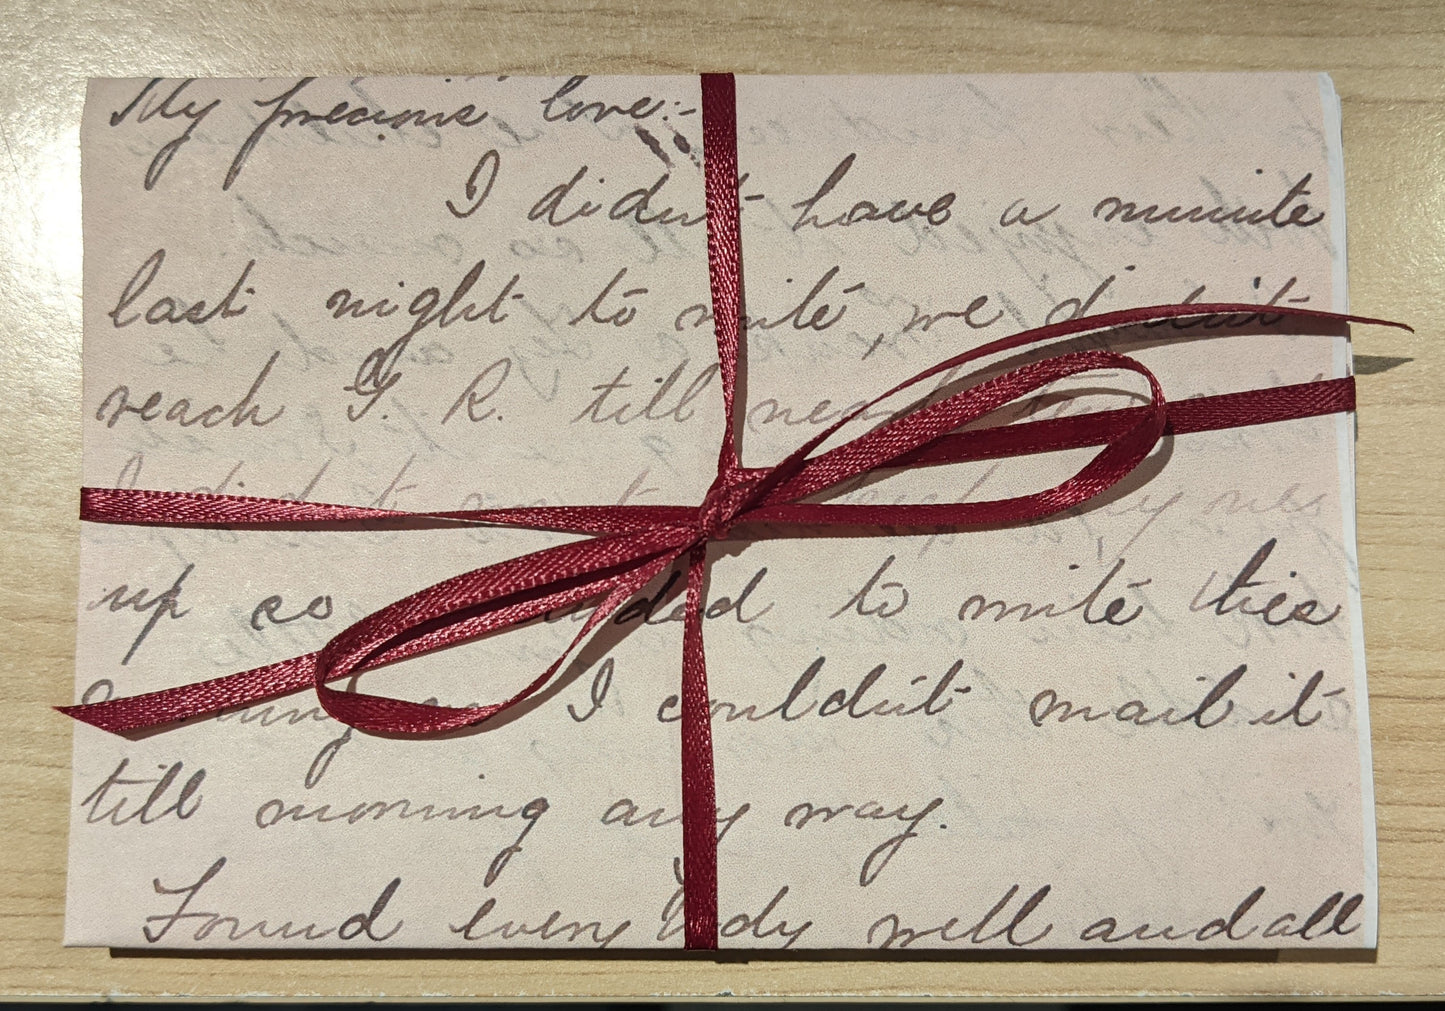 My precious love:-
I didn't have a minute
last night to write, we didn't
reach G. R. till near
up so decided to write this
I couldn't mail it
till morning any way.
Found everybody well and all